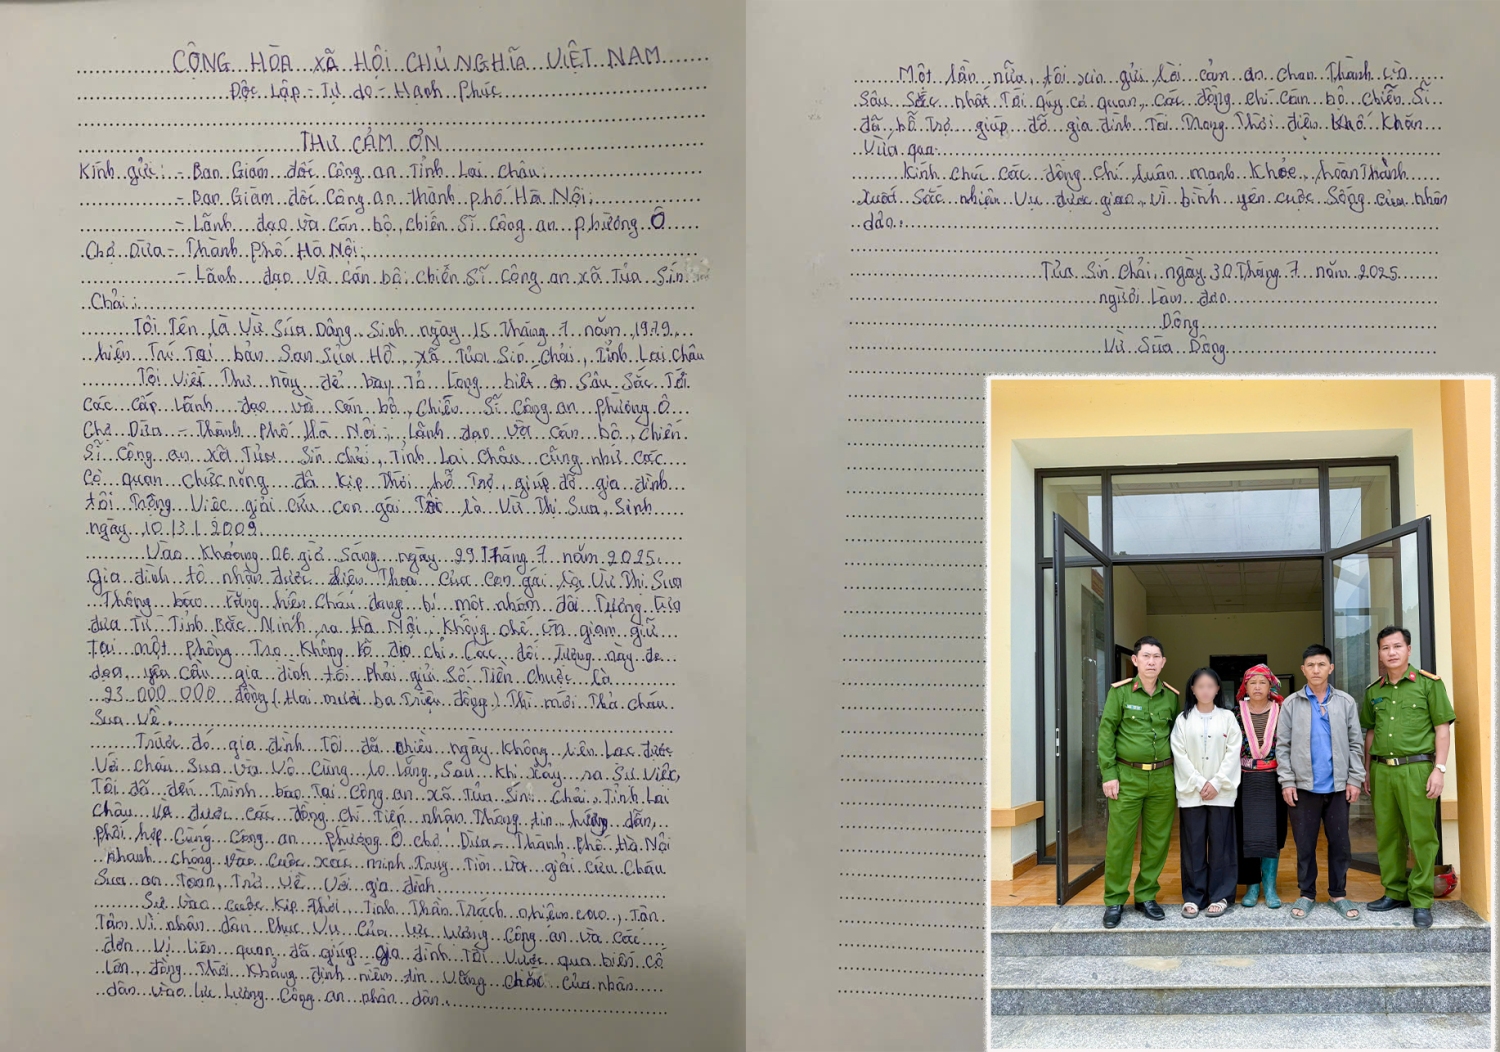 CỘNG HÒA XÃ HỘI CHỦ NGHĨA VIỆT NAM
Độc Lập - Tự do - Hạnh Phúc
THƯ CẢM ƠN
Kính gửi: - Ban Giám đốc Công an Tỉnh Lai Châu;
- Ban Giám đốc Công an thành phố Hà Nội;
- Lãnh đạo và Cán bộ, chiến Sĩ Công an phường Ô
Chợ Dừa - Thành Phố Hà Nội;
- Lãnh đạo và cán bộ, chiến Sĩ Công an xã Tủa Sín
Chải;
Tôi Tên là Vừ Súa Dông, Sinh ngày 15 Tháng 7 năm 1979,
hiện Trú Tại bản San Sủa Hồ, xã Tủa Sín Chải, Tỉnh Lai Châu
Tôi Viết Thư này để bày Tỏ Lòng biết ơn Sâu Sắc Tới
Các Cấp Lãnh đạo và cán bộ, Chiến Sĩ Công an Phường Ô
Chợ Dừa - Thành Phố Hà Nội; Lãnh đạo và cán bộ, chiến
Sĩ Công an xã Tủa Sín chải, Tỉnh Lai Châu cũng như các
Cơ quan chức năng đã kịp Thời, hỗ Trợ, giúp đỡ gia đình
tôi Trong Việc giải cứu con gái Tôi là Vừ Thị Sua, Sinh
ngày 10/3/2009
Vào Khoảng 06 giờ Sáng ngày 29 Tháng 7 năm 2025,
gia đình tô nhận được điện Thoại của con gái là Vừ Thị Sua
Thông báo rằng hiện Cháu đang bị một nhóm đối Tượng
đưa Từ Tỉnh Bắc Ninh ra Hà Nội, Khống chế và giam giữ
Tại một Phòng Trọ Không rõ địa chỉ. Các đối Tượng này đe
dọa, yêu Cầu gia đình tôi Phải gửi Số Tiền Chuộc là
23.000.000 đồng (Hai mươi ba Triệu đồng) Thì mới Thả cháu
Sua Về.
Trước đó gia đình Tôi đã nhiều ngày Không liên Lạc được
Với cháu Sua và Vô Cùng lo lắng, Sau khi xảy ra Sự Việc,
Tôi đã đến Trình báo Tại Công an xã Tủa Sín Chải, Tỉnh Lai
Châu và được các đồng chí Tiếp nhận Thông tin hướng dẫn,
phối hợp Cùng Công an Phường Ô chợ Dừa - Thành Phố Hà Nội
nhanh chóng vào Cuộc xác minh Truy Tìm và giải Cứu Cháu
Sua an Toàn, Trở về Với gia đình
Sự vào cuộc kịp thời, Tinh Thần Trách nhiệm cao, Tận
Tâm Vì nhân dân Phục Vụ của lực lượng Công an và các
đơn vị liên quan đã giúp gia đình Tôi Vượt qua biến cố
lớn, đồng Thời Khẳng định niềm tin Vững chắc của nhân
dân vào lực Lượng Công an nhân dân.
Một lần nữa, tôi xin gửi lời cảm ơn chan Thành và
Sâu Sắc nhất Tới qúy cơ quan, các đồng chí cán bộ chiến Sĩ
đã hỗ Trợ giúp đỡ gia đình Tôi Trong Thời điểm khó Khăn
Vừa qua
Kính chúc các đồng chí luôn mạnh Khỏe, hoàn Thành
xuất Sắc nhiệm Vụ được giao, vì bình yên cuộc Sống của nhân
dân.
Tủa Sín Chải, ngày 30 Tháng 7 năm 2025
người Làm đơn
Dông
Vừ Súa Dông